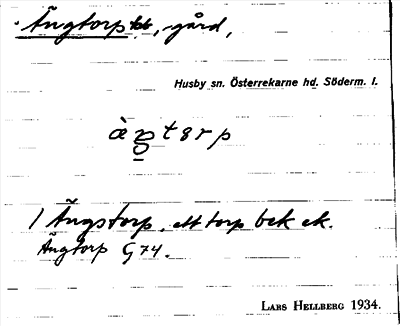 Ängtorp, gård,
Husby sn. Österrekarne hd. Söderm. l.
Ängstorp, ett torp bek ek.
Ängtorp G 74.
LARS HELLBERG 1934.